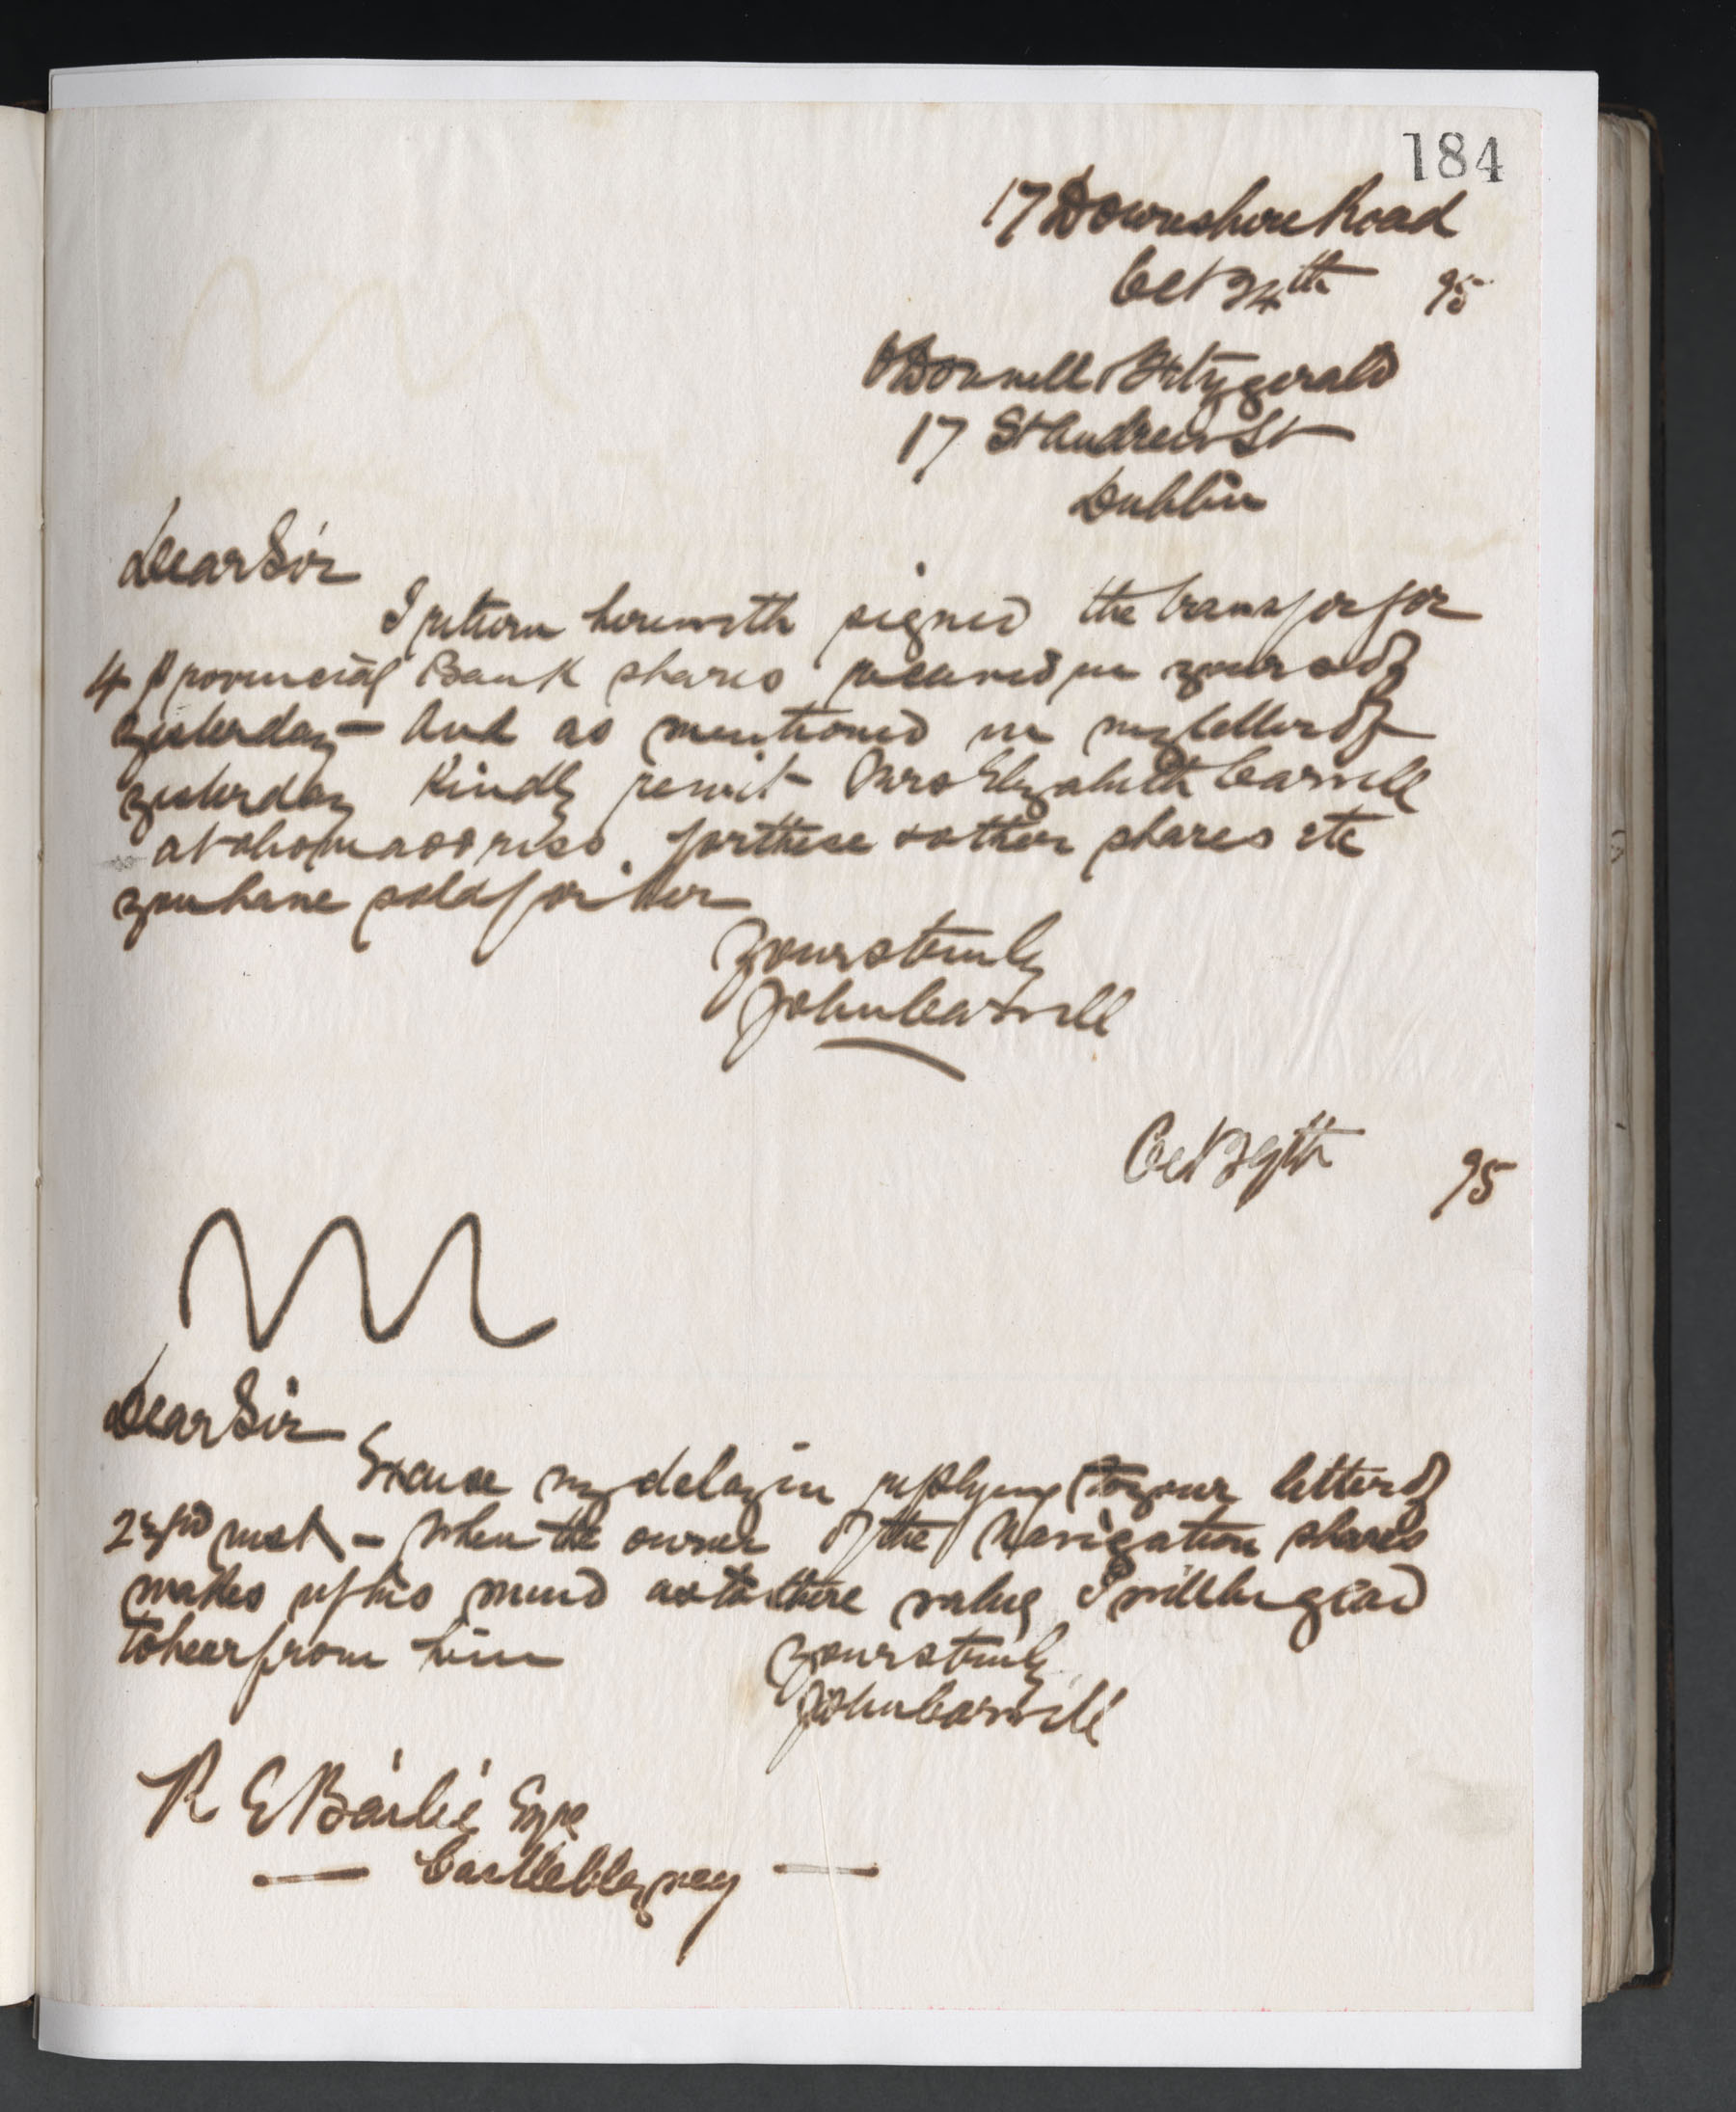 184
17 Downshire Road
Oct 24th 95
O'Donnell Fitzgerald
17 St Andrew St
Dublin
Dear Sir
I return herewith signed the transfer for
4 Provincial Bank shares received in yours of
yesterday - And as mentioned in my letter of
yesterday kindly remit Mrs Elizabeth Carvill
at address for these & other shares etc
you have sold for her
Yours truly
John Carvill
Oct 29th 95
Dear Sir
Excuse my delay in replying to your letter of
23rd inst - When the owner of the Navigation shares
makes up his mind as to there value I will be glad
to hear from him
Yours truly
John Carvill
R E Bailie Esqre
Castleblayney